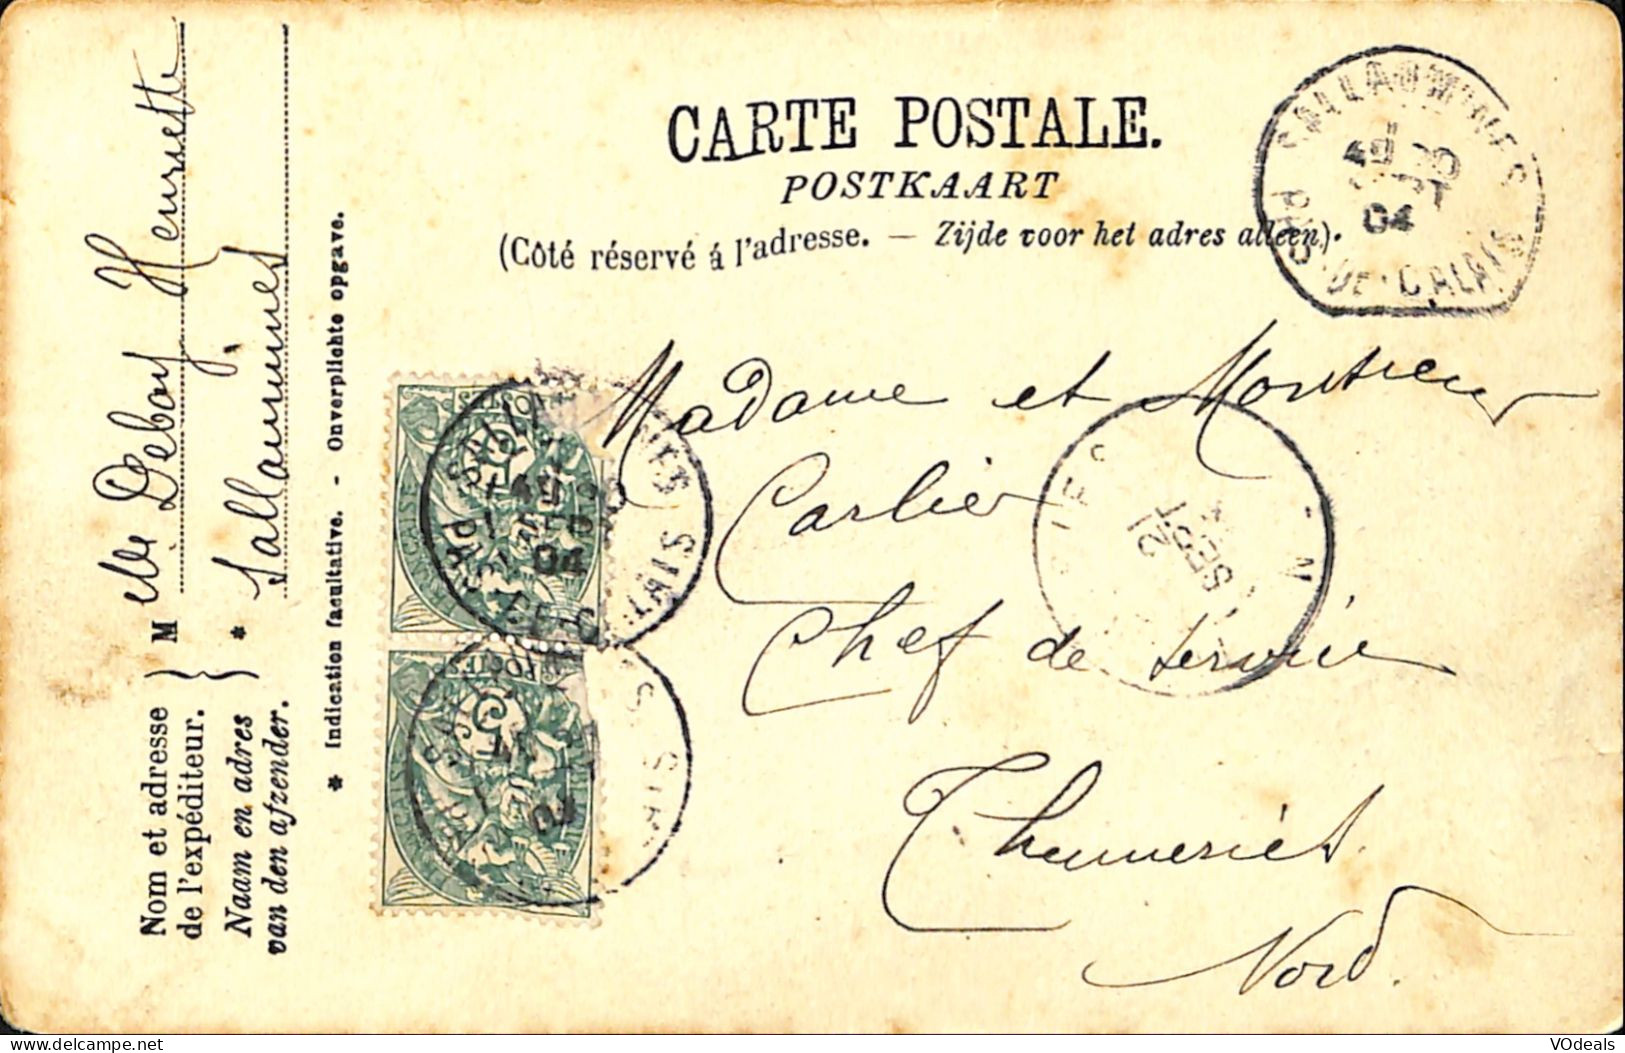 CARTE POSTALE.
POSTKAART
(Côté réservé á l'adresse. — Zijde voor het adres alleen).
SALLAUMINES
20
04
PAS-DE-CALAIS
Madame et Monsieur
Carlier
Chef de service
Thumeries
Nord.
21
SEPT
Nom et adresse
de l'expéditeur.
Naam en adres
van den afzender.
} Melle Deboy Henriette
} * Sallaumines
* Indication facultative. - Onverplichte opgave.
5
04
5
04
VDeals